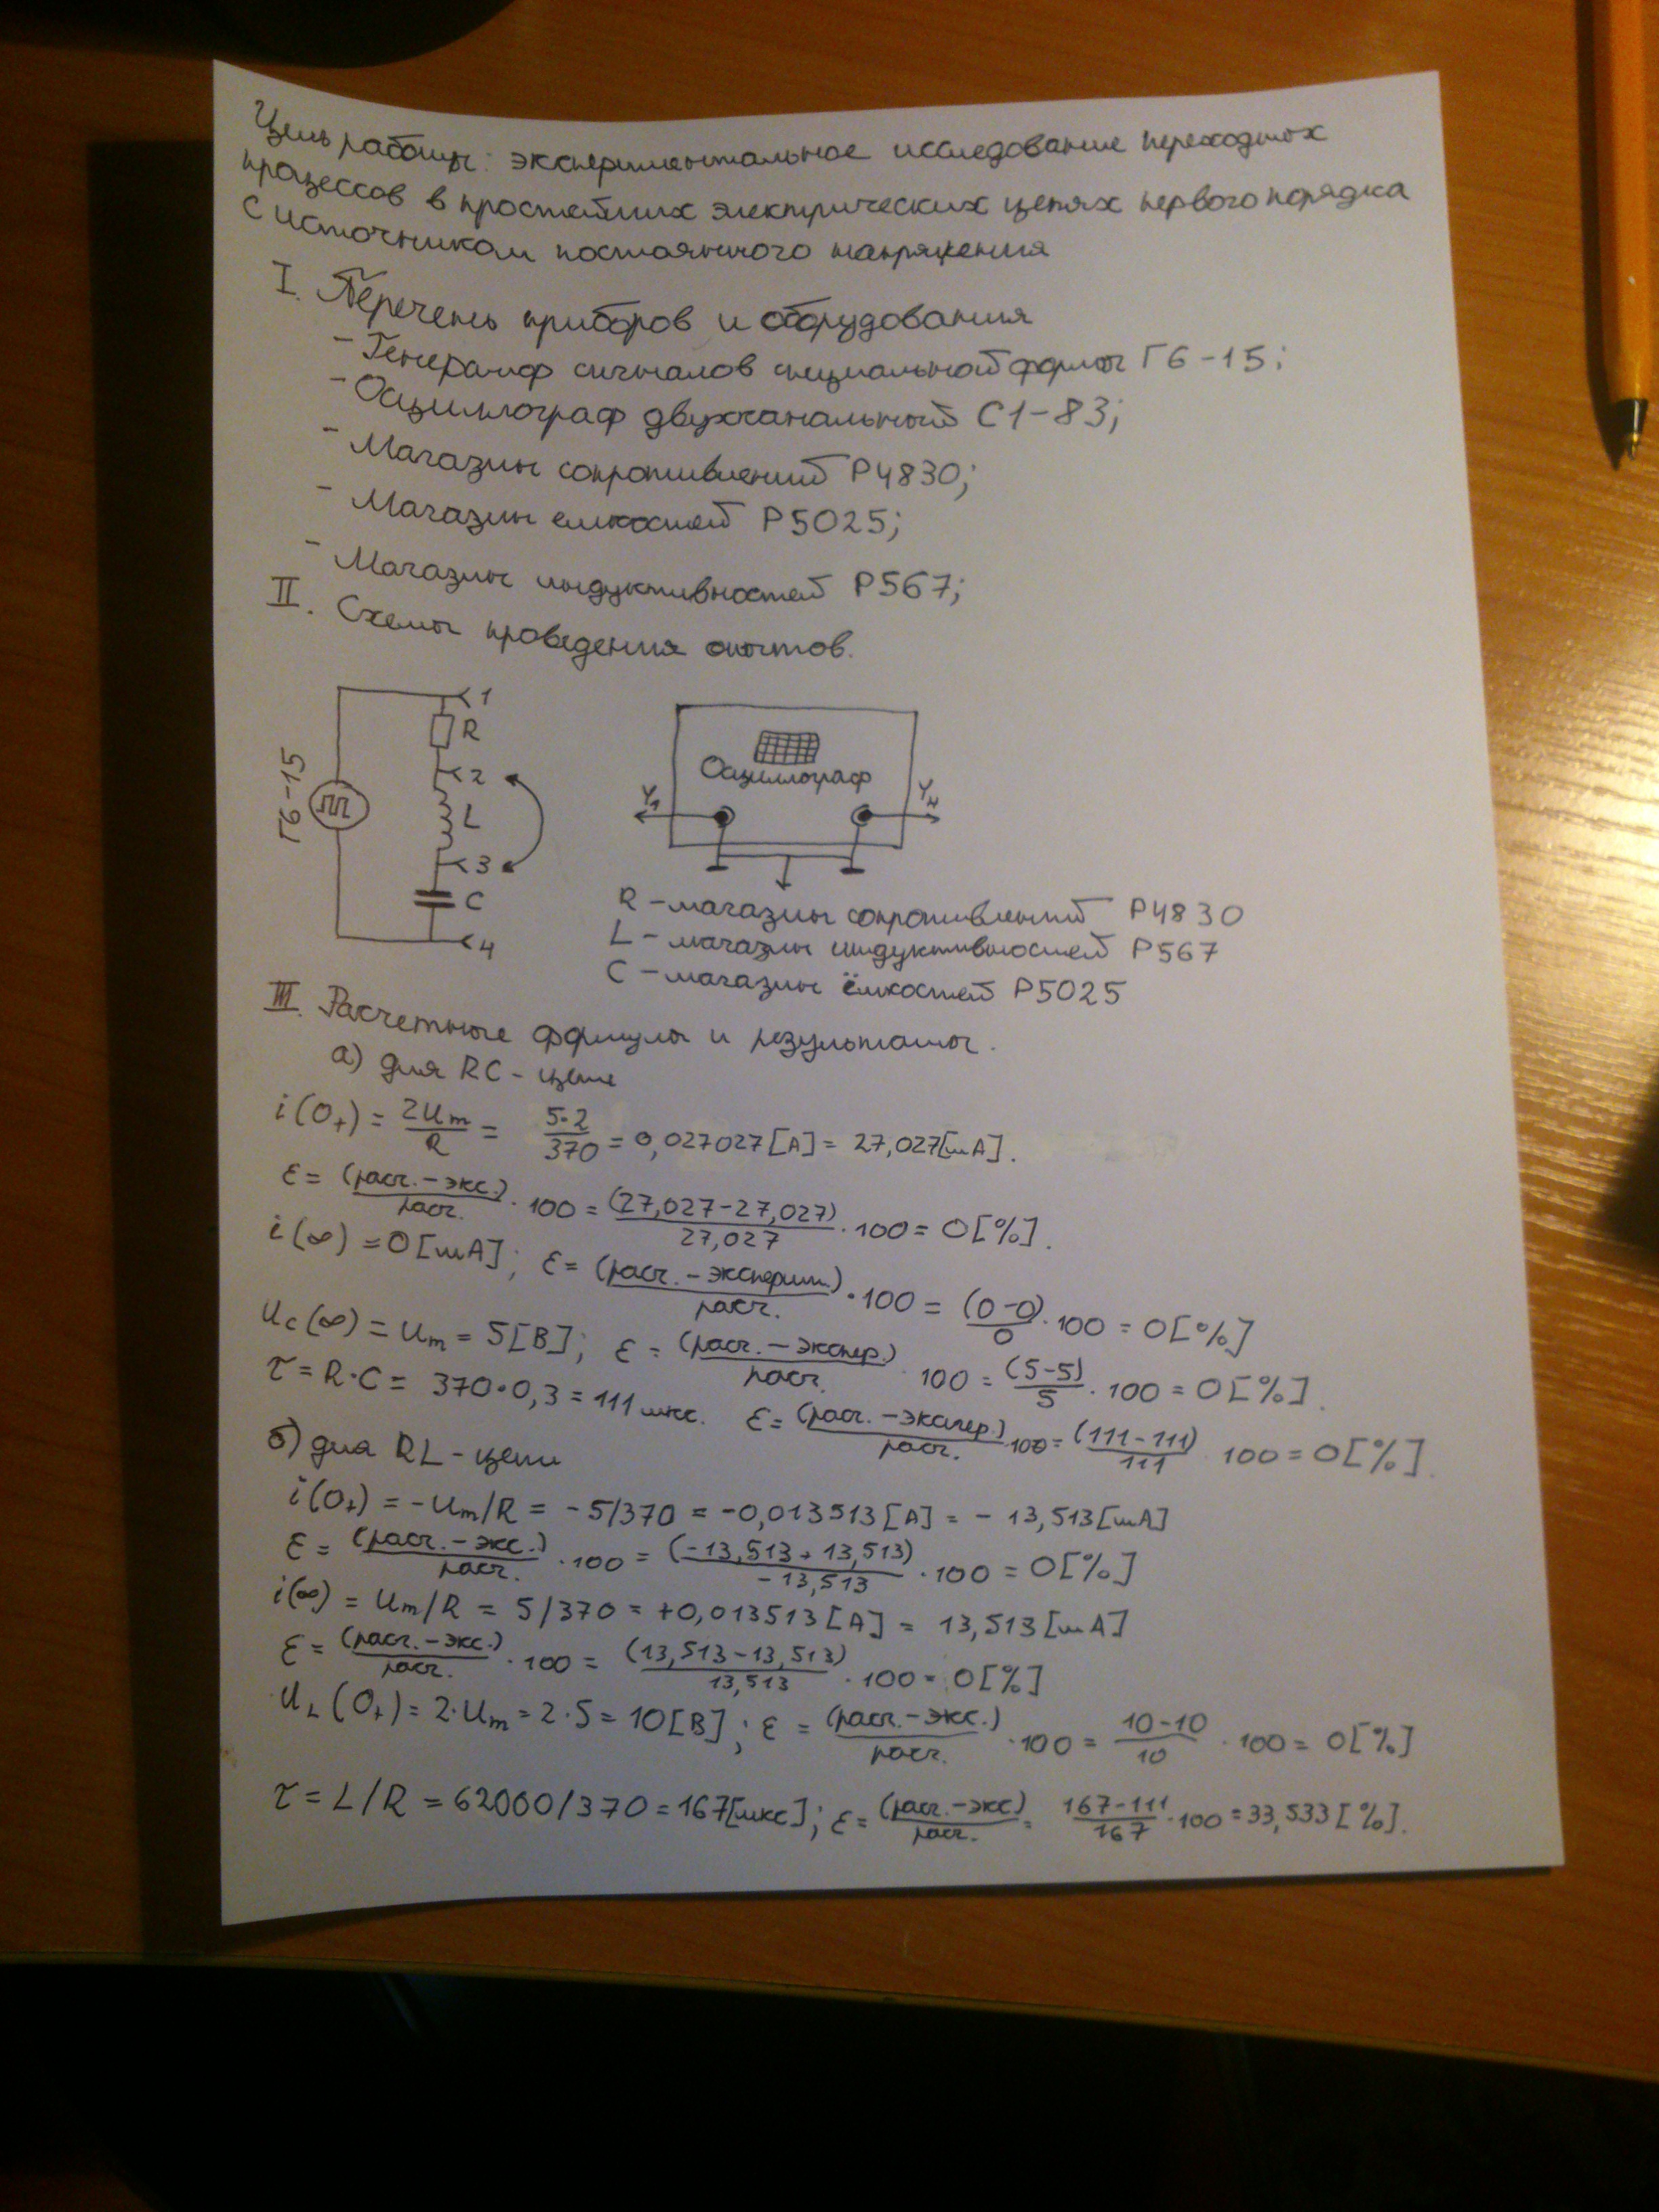 Цель работы: экспериментальное исследование переходных
процессов в простейших электрических цепях первого порядка
с источником постоянного напряжения
I. Перечень приборов и оборудования
- Генератор сигналов специальной формы Г6-15;
- Осциллограф двухканальный С1-83;
- Магазин сопротивлений Р4830;
- Магазин емкостей Р5025;
- Магазин индуктивностей Р567;
II. Схемы проведения опытов.
Г6-15
1
R
2
L
3
C
4
Осциллограф
Y1
R - магазин сопротивлений Р4830
L - магазин индуктивностей Р567
C - магазин ёмкостей Р5025
III. Расчетные формулы и результаты.
а) для RC - цепи
i(0+) = 2Um/R = 5·2/370 = 0,027027[А] = 27,027[мА].
ε = (расч. - экс.)/расч. · 100 = (27,027-27,027)/27,027 · 100 = 0[%].
i(∞) = 0[мА]; ε = (расч. - эксперим.)/расч. · 100 = (0-0)/0 · 100 = 0[%]
Uc(∞) = Um = 5[В]; ε = (расч. - экспер.)/расч. · 100 = (5-5)/5 · 100 = 0[%].
τ = R·C = 370·0,3 = 111 мкс. ε = (расч. - экспер.)/расч. · 100 = (111-111)/111 · 100 = 0[%].
б) для RL - цепи
i(0+) = -Um/R = -5/370 = -0,013513[А] = -13,513[мА]
ε = (расч. - экс.)/расч. · 100 = (-13,513+13,513)/-13,513 · 100 = 0[%]
i(∞) = Um/R = 5/370 = +0,013513[А] = 13,513[мА]
ε = (расч. - экс.)/расч. · 100 = (13,513-13,513)/13,513 · 100 = 0[%]
UL(0+) = 2·Um = 2·5 = 10[В]; ε = (расч. - экс.)/расч. · 100 = 10-10/10 · 100 = 0[%]
τ = L/R = 62000/370 = 167[мкс]; ε = (расч. - экс)/расч. = 167-111/167 · 100 = 33,533[%].